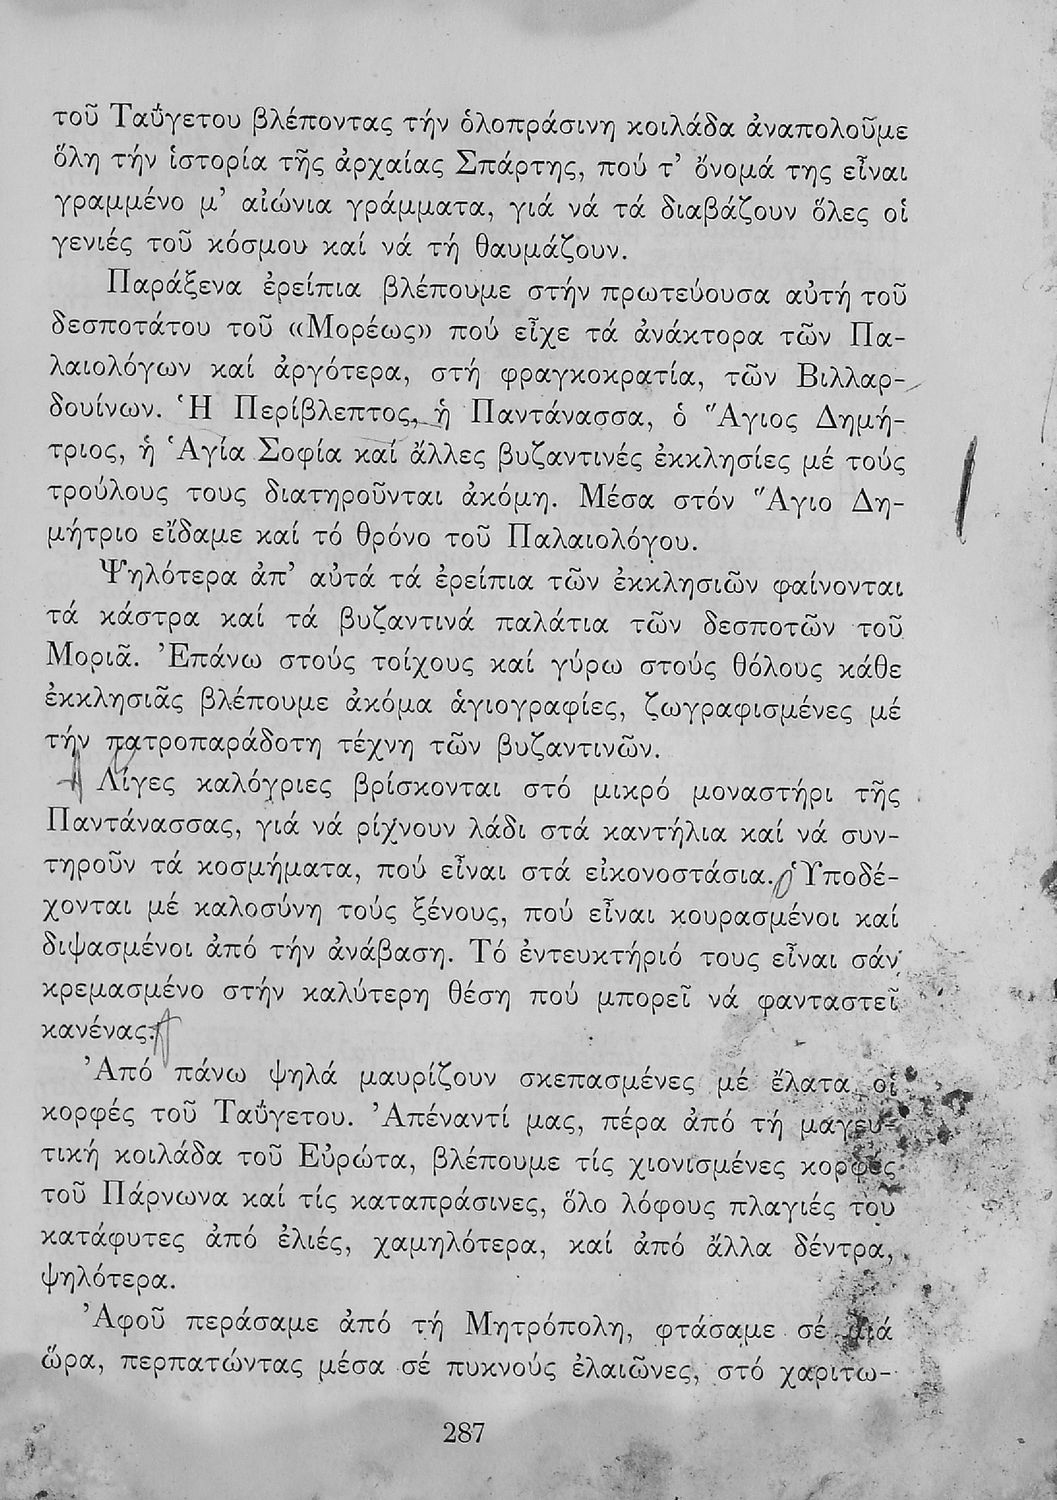 τοῦ Ταΰγετου βλέποντας τήν ὁλοπράσινη κοιλάδα ἀναπολοῦμε
ὅλη τήν ἱστορία τῆς ἀρχαίας Σπάρτης, πού τ’ ὄνομά της εἶναι
γραμμένο μ’ αἰώνια γράμματα, γιά νά τά διαβάζουν ὅλες οἱ
γενιές τοῦ κόσμου καί νά τή θαυμάζουν.
Παράξενα ἐρείπια βλέπουμε στήν πρωτεύουσα αὐτή τοῦ
δεσποτάτου τοῦ «Μορέως» πού εἶχε τά ἀνάκτορα τῶν Πα-
λαιολόγων καί ἀργότερα, στή φραγκοκρατία, τῶν Βιλλαρ-
δουίνων. Ἡ Περίβλεπτος, ἡ Παντάνασσα, ὁ Ἅγιος Δημή-
τριος, ἡ Ἁγία Σοφία καί ἄλλες βυζαντινές ἐκκλησίες μέ τούς
τρούλους τους διατηροῦνται ἀκόμη. Μέσα στόν Ἅγιο Δη-
μήτριο εἴδαμε καί τό θρόνο τοῦ Παλαιολόγου.
Ψηλότερα ἀπ’ αὐτά τά ἐρείπια τῶν ἐκκλησιῶν φαίνονται
τά κάστρα καί τά βυζαντινά παλάτια τῶν δεσποτῶν τοῦ
Μοριᾶ. Ἐπάνω στούς τοίχους καί γύρω στούς θόλους κάθε
ἐκκλησιᾶς βλέπουμε ἀκόμα ἁγιογραφίες, ζωγραφισμένες μέ
τήν πατροπαράδοτη τέχνη τῶν βυζαντινῶν.
Λίγες καλόγριες βρίσκονται στό μικρό μοναστήρι τῆς
Παντάνασσας, γιά νά ρίχνουν λάδι στά καντήλια καί νά συν-
τηροῦν τά κοσμήματα, πού εἶναι στά εἰκονοστάσια. Ὑποδέ-
χονται μέ καλοσύνη τούς ξένους, πού εἶναι κουρασμένοι καί
διψασμένοι ἀπό τήν ἀνάβαση. Τό ἐντευκτήριό τους εἶναι σάν
κρεμασμένο στήν καλύτερη θέση πού μπορεῖ νά φανταστεῖ
κανένας.
Ἀπό πάνω ψηλά μαυρίζουν σκεπασμένες μέ ἔλατα οἱ
κορφές τοῦ Ταΰγετου. Ἀπέναντί μας, πέρα ἀπό τή μαγευ-
τική κοιλάδα τοῦ Εὐρώτα, βλέπουμε τίς χιονισμένες κορφές
τοῦ Πάρνωνα καί τίς καταπράσινες, ὅλο λόφους πλαγιές του
κατάφυτες ἀπό ἐλιές, χαμηλότερα, καί ἀπό ἄλλα δέντρα,
ψηλότερα.
Ἀφοῦ περάσαμε ἀπό τή Μητρόπολη, φτάσαμε σέ μιά
ὥρα, περπατώντας μέσα σέ πυκνούς ἐλαιῶνες, στό χαριτω-
287